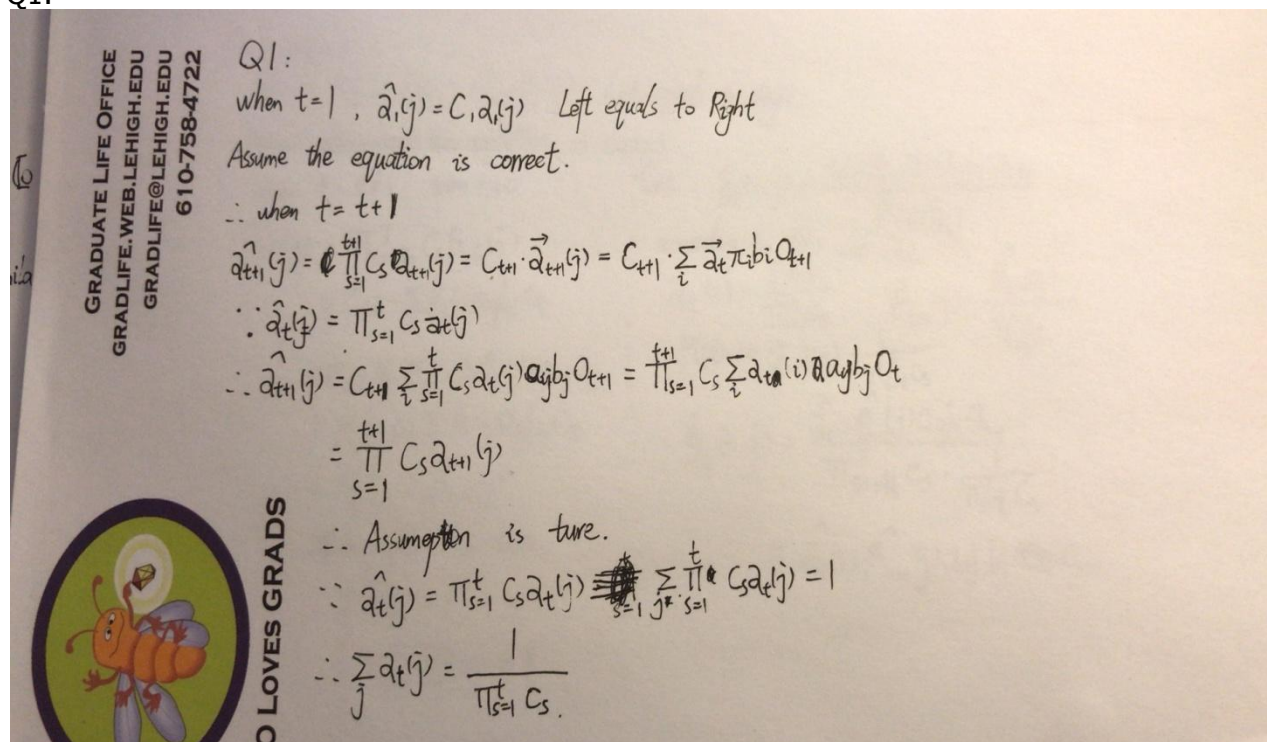 Q1:
GRADUATE LIFE OFFICE
GRADLIFE.WEB.LEHIGH.EDU
GRADLIFE@LEHIGH.EDU
610-758-4722
O LOVES GRADS
Q1:
when t=1, â₁(j) = C₁a₁(j) Left equals to Right
Assume the equation is correct.
∴ when t = t+1
â_{t+1}(j) = ∏_{s=1}^{t+1} C_s a_{t+1}(j) = C_{t+1}·a⃗_{t+1}(j) = C_{t+1}·∑_i a⃗_t π_i b_i O_{t+1}
∵ â_t(j) = ∏_{s=1}^t C_s a_t(j)
∴ â_{t+1}(j) = C_{t+1} ∑_i ∏_{s=1}^t C_s a_t(j) a_{ij} b_j O_{t+1} = ∏_{s=1}^{t+1} C_s ∑_i a_t(i) a_{ij} b_j O_t
= ∏_{s=1}^{t+1} C_s a_{t+1}(j)
∴ Assumeption is ture.
∵ â_t(j) = ∏_{s=1}^t C_s a_t(j) ∑_j ∏_{s=1}^t C_s a_t(j) = 1
∴ ∑_j a_t(j) = 1 / ∏_{s=1}^t C_s.